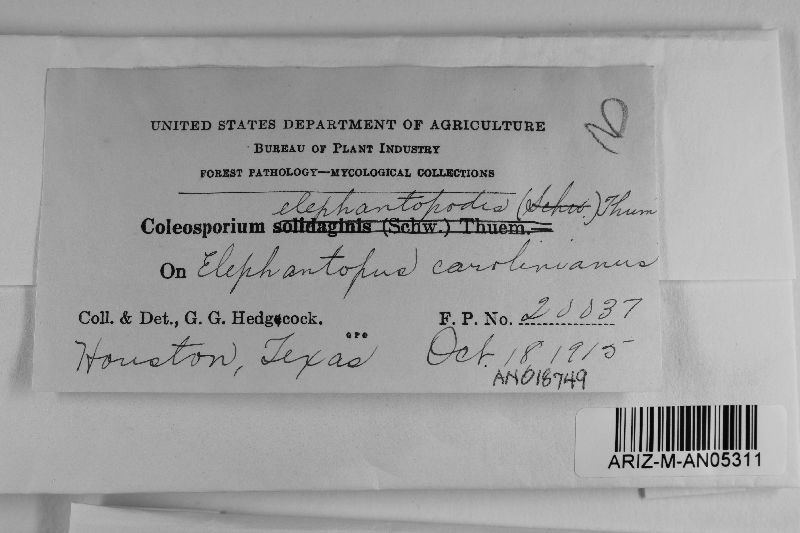 UNITED STATES DEPARTMENT OF AGRICULTURE
BUREAU OF PLANT INDUSTRY
FOREST PATHOLOGY—MYCOLOGICAL COLLECTIONS
elephantopodis (Schw.) Thum
Coleosporium solidaginis (Schw.) Thuem.
On Elephantopus carolinianus
Coll. & Det., G. G. Hedgcock. F. P. No. 20037
GPO
Houston, Texas Oct. 18 1915
AN018749
ARIZ-M-AN05311